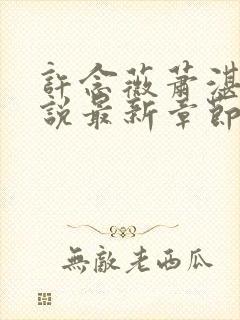 許念薇蕭湛
說最新章節
無敵老西瓜